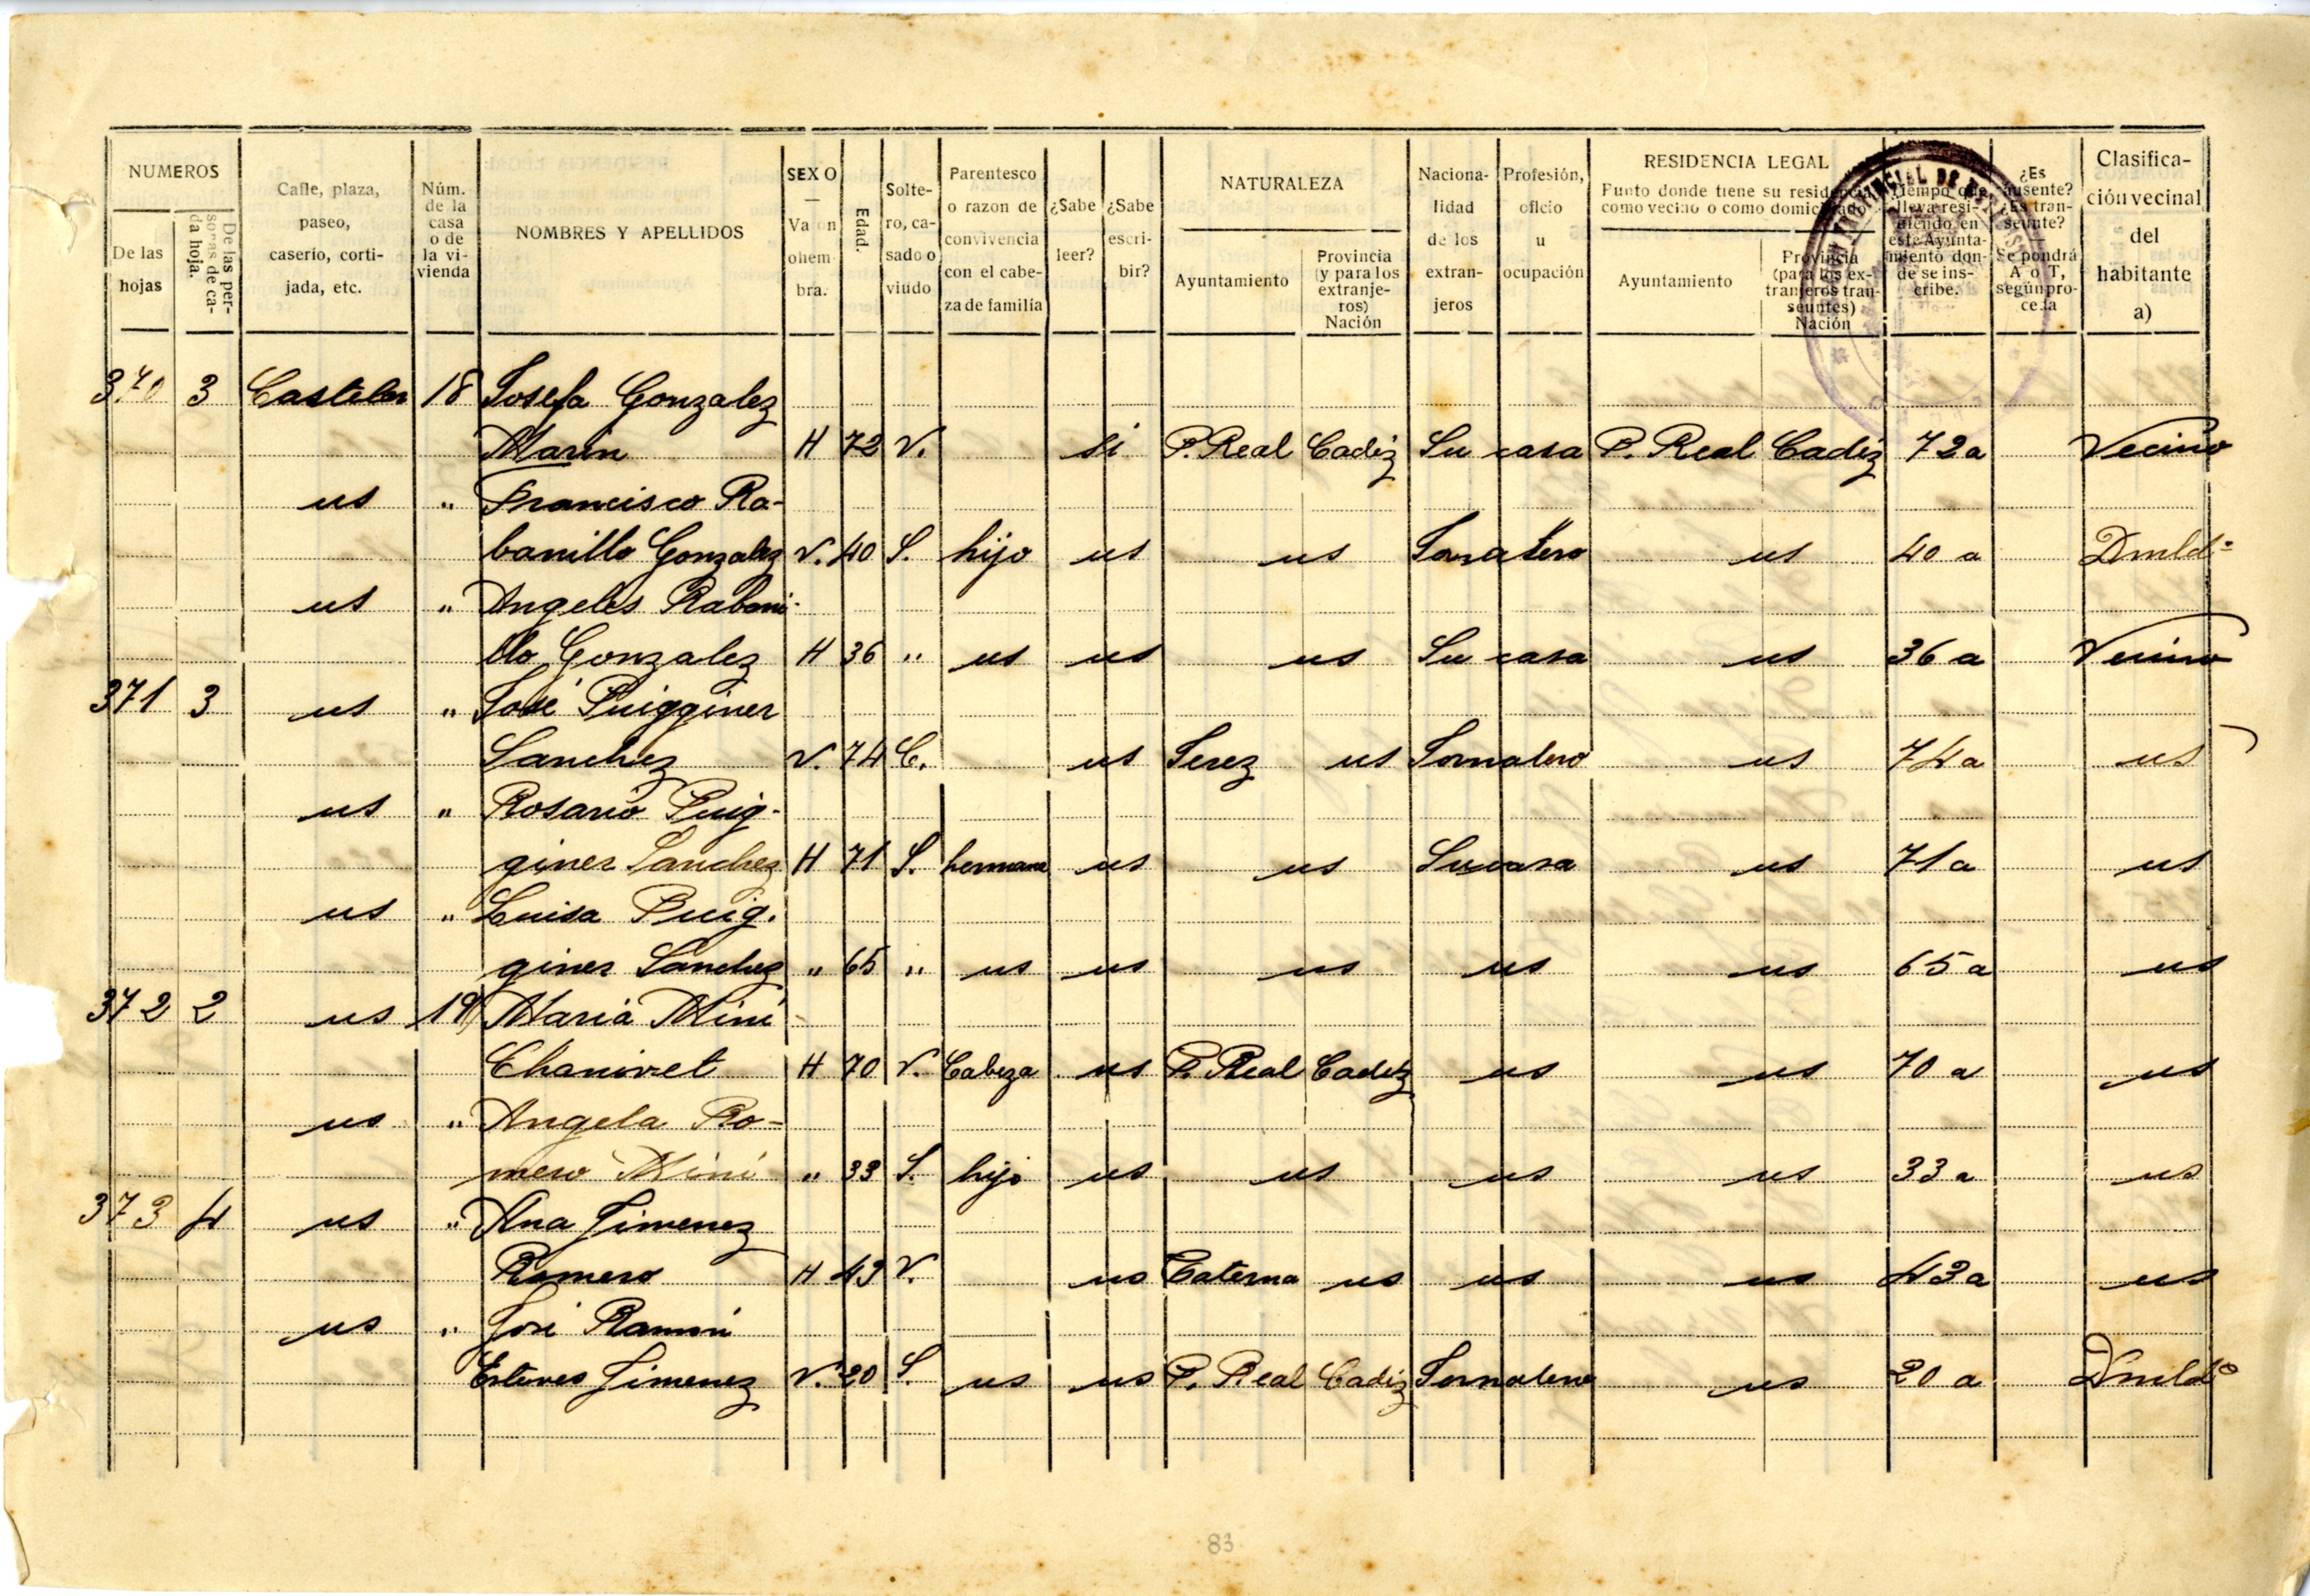 NUMEROS
De las hojas
De las personas de cada hoja.
Calle, plaza, paseo, caserío, cortijada, etc.
Núm. de la casa o de la vivienda
NOMBRES Y APELLIDOS
SEXO — Varón o hembra.
Edad.
Soltero, casado o viudo
Parentesco o razon de convivencia con el cabeza de familia
¿Sabe leer?
¿Sabe escribir?
NATURALEZA
Ayuntamiento
Provincia (y para los extranjeros) Nación
Nacionalidad de los extranjeros
Profesión, oficio u ocupación
RESIDENCIA LEGAL
Punto donde tiene su residencia como vecino o como domiciliado
Ayuntamiento
Provincia (para los extranjeros transeuntes) Nación
Tiempo que lleva residiendo en este Ayuntamiento donde se inscribe.
¿Es ausente? ¿Es transeunte? Se pondrá A o T, según proceda
Clasificación vecinal del habitante a)
370 3 Castelar 18 Josefa Gonzalez
Marin H 72 V. si P. Real Cadiz Su casa P. Real Cadiz 72 a Vecino
us " Francisco Ra-
banillo Gonzalez V. 40 S. hijo us us Jornalero us 40 a Dmldº
us " Angeles Rabani-
llo Gonzalez H 36 " us us us Su casa us 36 a Vecino
371 3 us " José Puigginer
Sanchez V. 74 C. us Jerez us Jornalero us 74 a us
us " Rosario Puig-
giner Sanchez H 71 S. hermana us us Su casa us 71 a us
us " Luisa Puig.
giner Sanchez " 65 " us us us us us 65 a us
372 2 us 19 Maria Mini
Chanivet H 70 V. Cabeza us P. Real Cadiz us us 70 a us
us " Angela Ro-
mero Mini " 33 S. hijo us us us us 33 a us
373 4 us " Ana Jimenez
Romero H 43 V. us Paterna us us us 43 a us
us " José Ramón
Esteves Jimenez V. 20 S. us us P. Real Cadiz Jornalero us 20 a Dmldº
83